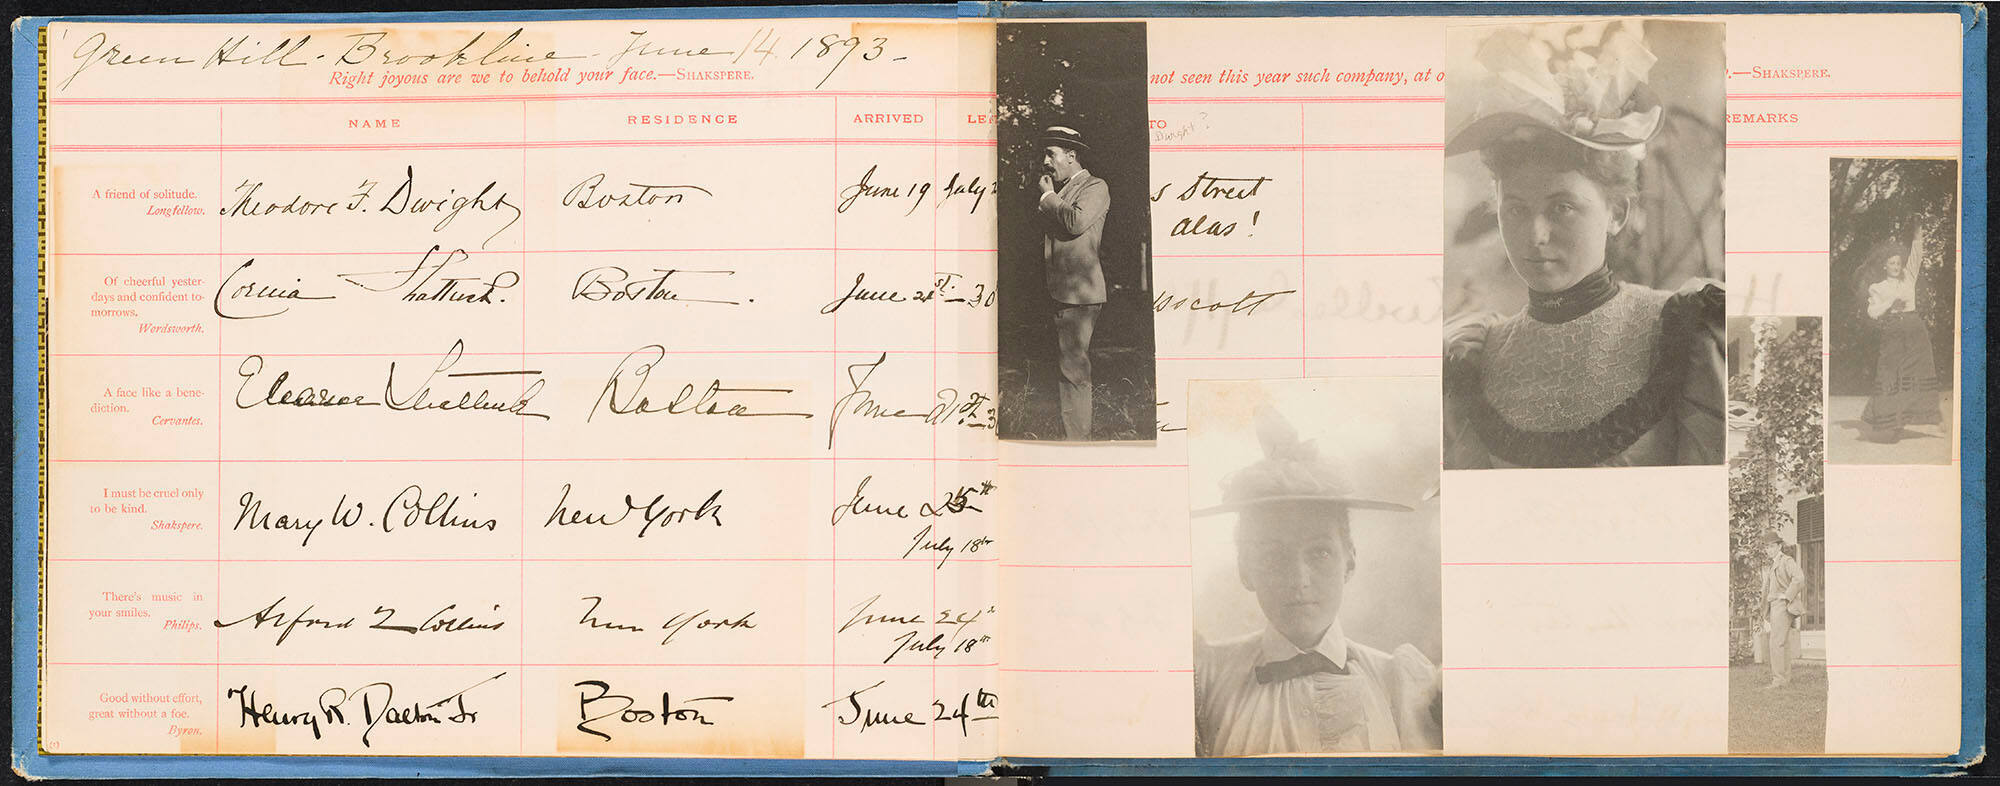 Green Hill - Brookline - June 14 1893 -
Right joyous are we to behold your face.—SHAKSPERE.
not seen this year such company, at
—SHAKSPERE.
NAME RESIDENCE ARRIVED TO REMARKS
Dwight?
A friend of solitude.
Longfellow.
Theodore F. Dwight Boston June 19 July
Street
alas!
Of cheerful yester-
days and confident to-
morrows.
Wordsworth.
Corina Shattuck. Boston. June 21st - 30
A face like a bene-
diction.
Cervantes.
Eleanor Shattuck Boston June 21st
I must be cruel only
to be kind.
Shakspere.
Mary W. Collins New York June 25th
July 18th
There's music in
your smiles.
Philips.
Alfred Q Collins New York June 24
July 18th
Good without effort,
great without a foe.
Byron.
Henry R. Dalton Jr Boston June 24th
(1)